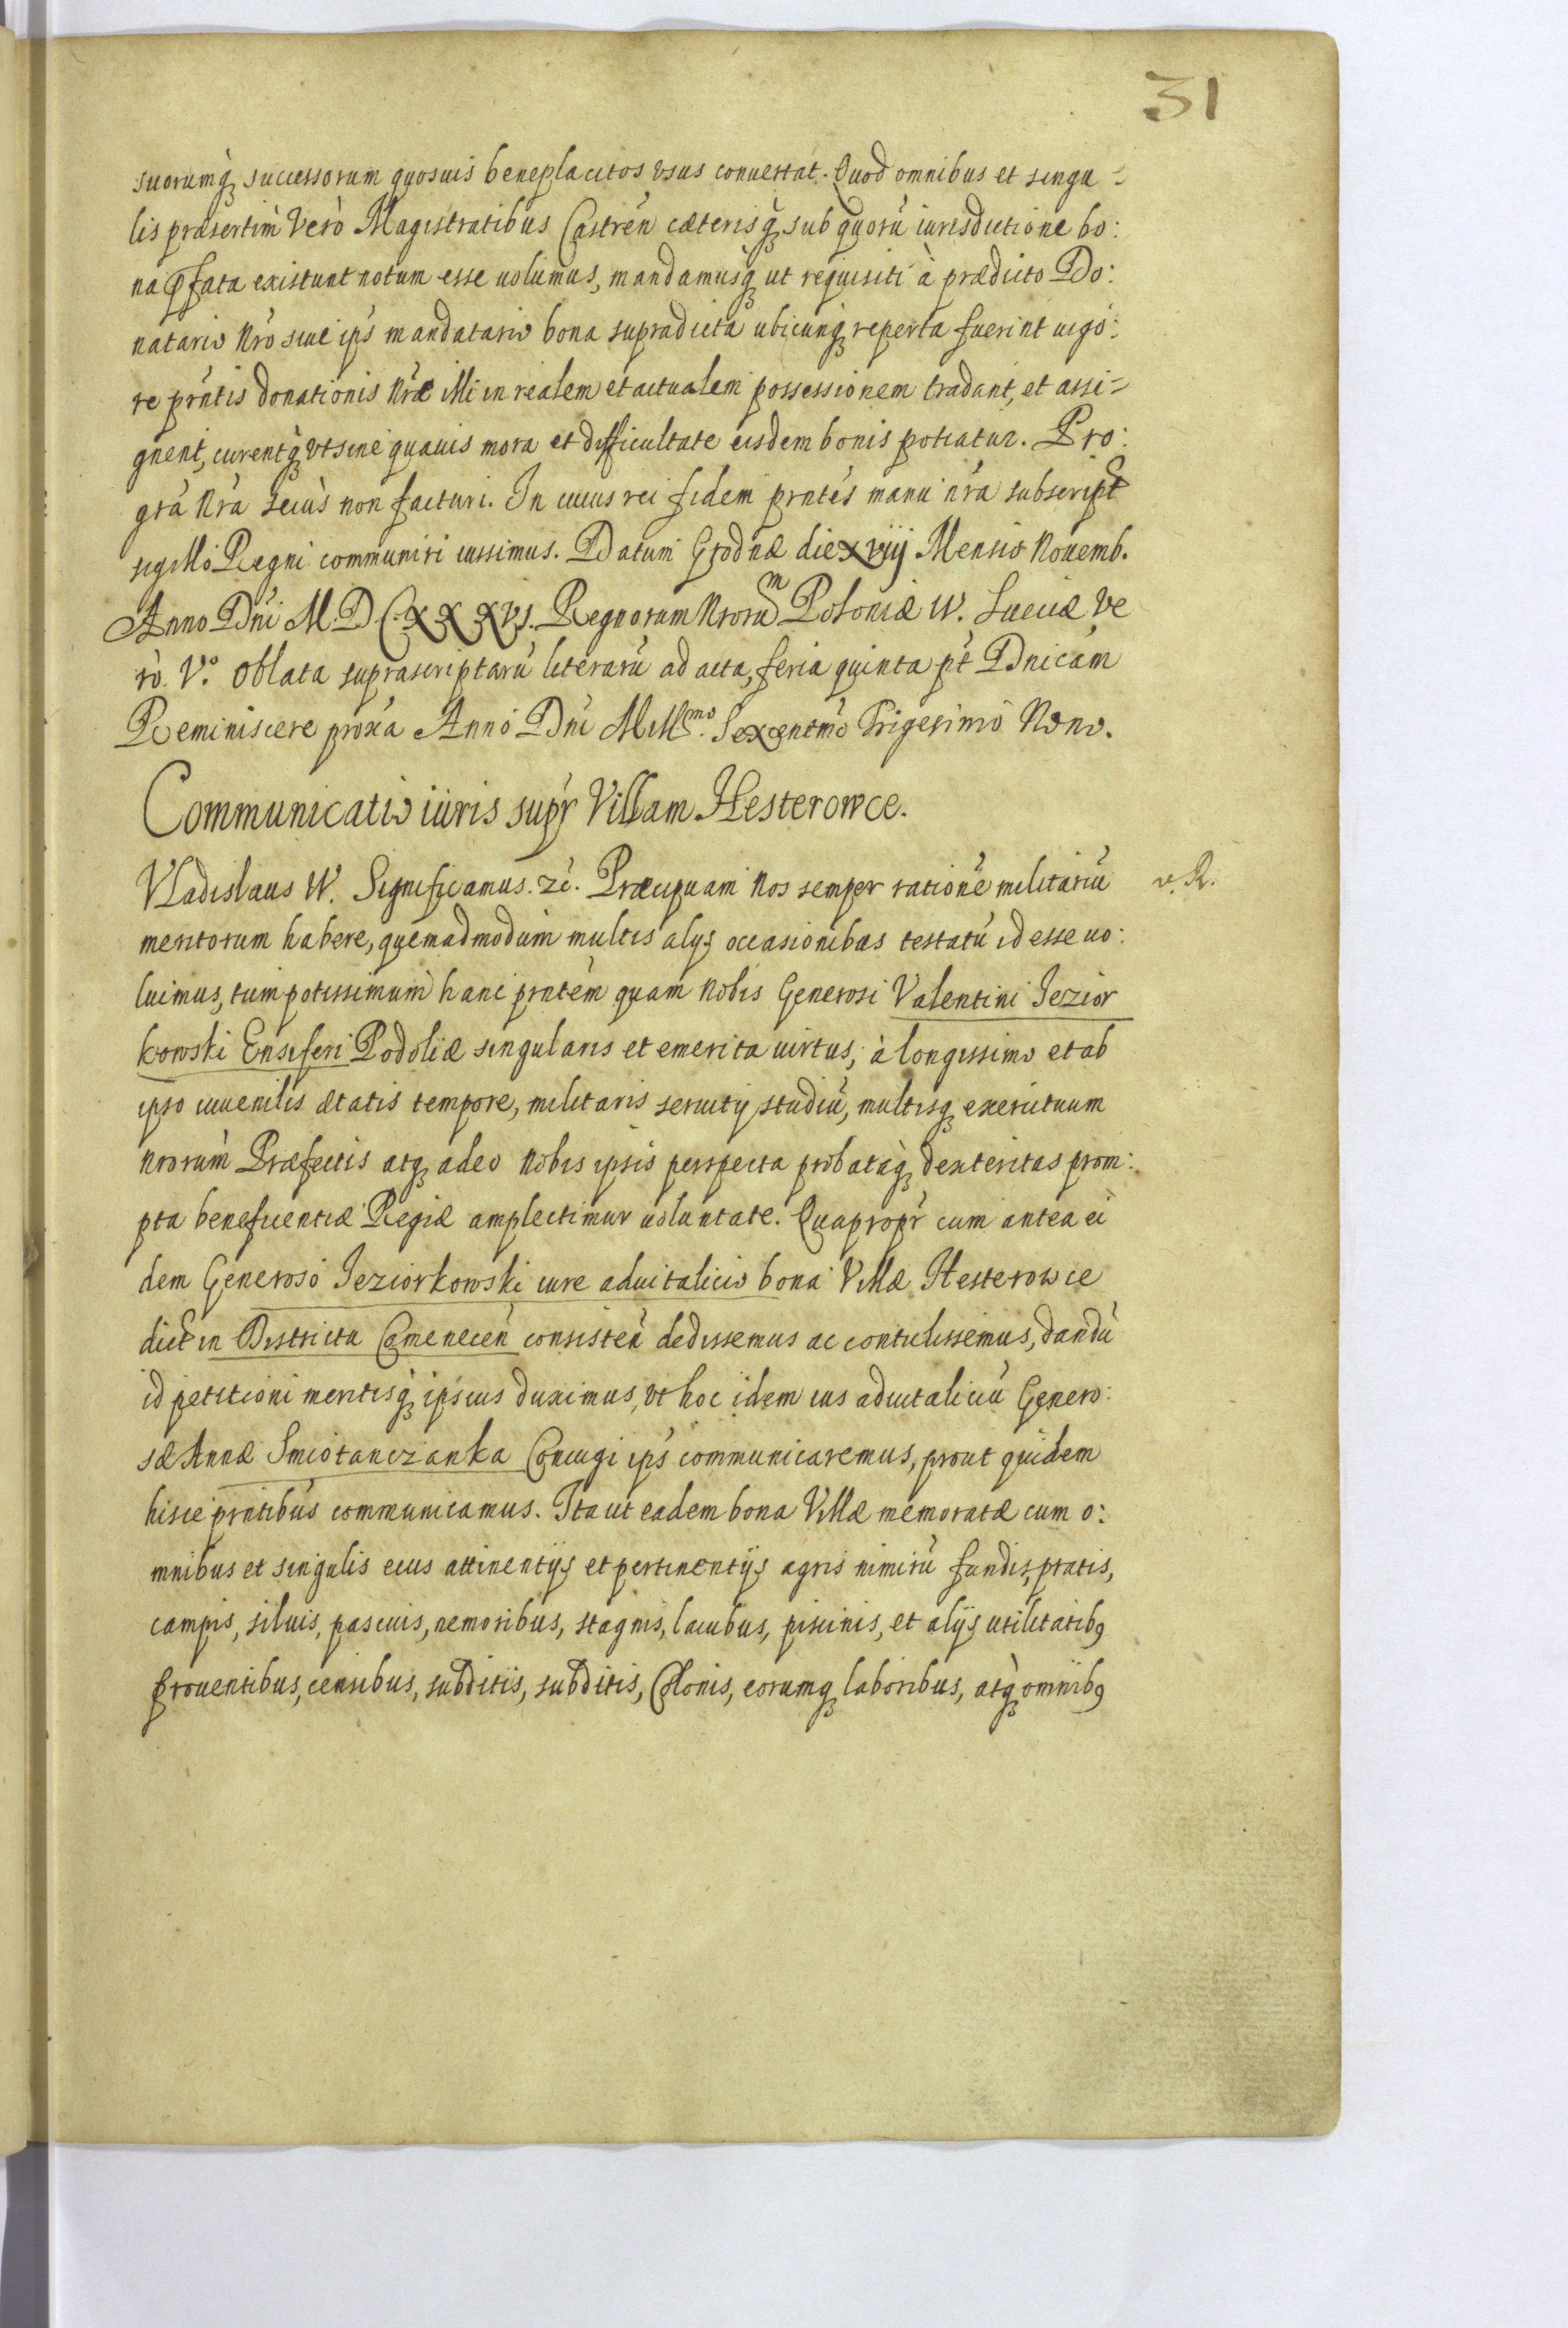 31
suorumq̀ꝫ successorum quosuis beneplacitos vsus conuertat. Quod omnibus et singu=
lis præsertim verò Magistratibus Castren̄ cæterisq̀ꝫ sub quorū iurisdictione bo:
na p̱fata existunt notum esse uolumus, mandamusq̀ꝫ ut requisiti à prædicto Do:
natario Nrō siue ips̄ mandatario bona supradicta ubicunq̀ꝫ reperta fuerint uigo:
re prn̄tis donationis Nrǣ illi in realem et actualem possessionem tradant, et assi=
gnent, curentq̀ꝫ vt sine quauis mora et difficultate eisdem bonis potiatur. Pro:
grā Nrā secus non facturi. In cuius rei fidem prntēs manu nrā subscript
sigillo Regni communiri iussimus. Datum Grodnæ die xviij Mensis Nouemb.
Anno Dnī M.D C.XXXVJ. Regnorum Nrorūm Poloniæ W. Sueciæ Ve
rò. V.º Oblata suprascriptarū literarū ad acta, feria quinta pt̄ Dnicām
Reminiscere proxā Anno Dnī Millmo. Sexcentmō Trigesimo Nono.
Communicatio iuris supr̄ Villam Hesterowce.
Vladislaus W. Significamus. zc̄. Præcipuam Nos semper rationē militariū v. R.
meritorum habere, quemadmodum multis alys occasionibus testatū id esse uo:
luimus, tum potissimum hanc prntēm quam Nobis Generosi Valentini Jezior
kowski Ensiferi Podoliæ singularis et emerita uirtus, à longissimo et ab
ipso iuuenilis ætatis tempore, militaris seruitij studiū, multisqꝫ exercituum
Nrorūm Præfectis atqꝫ adeo Nobis ipsis perspecta probataq̀ꝫ dexteritas prom:
pta beneficentiæ Regiæ amplectimur uoluntate. Quapropr̄ cum antea ei
dem Generoso Jeziorkowski iure aduitalicio bona Villæ Hesterowce
dict in Districtu Camenecen̄ consisten̄ dedissemus ac contulissemus, dandū
id petitioni meritisq̀ꝫ ipsius duximus, vt hoc idem ius aduitaliciū Genero:
sæ Annæ Smiotanczanka Coniugi ips̄ communicaremus, prout quidem
hisce prntibūs communicamus. Ita ut eadem bona Villæ memoratæ cum o:
mnibus et singulis eius attinentijs et pertinentijs agris nimirū fundis, pratis,
campis, siluis, pascuis, nemoribus, stagnis, lacubus, piscinis, et alijs utilitatibꝯ
prouentibus, censibus, subditis, subditis, Colonis, eorumqꝫ laboribus, atq̀ꝫ omnibꝯ